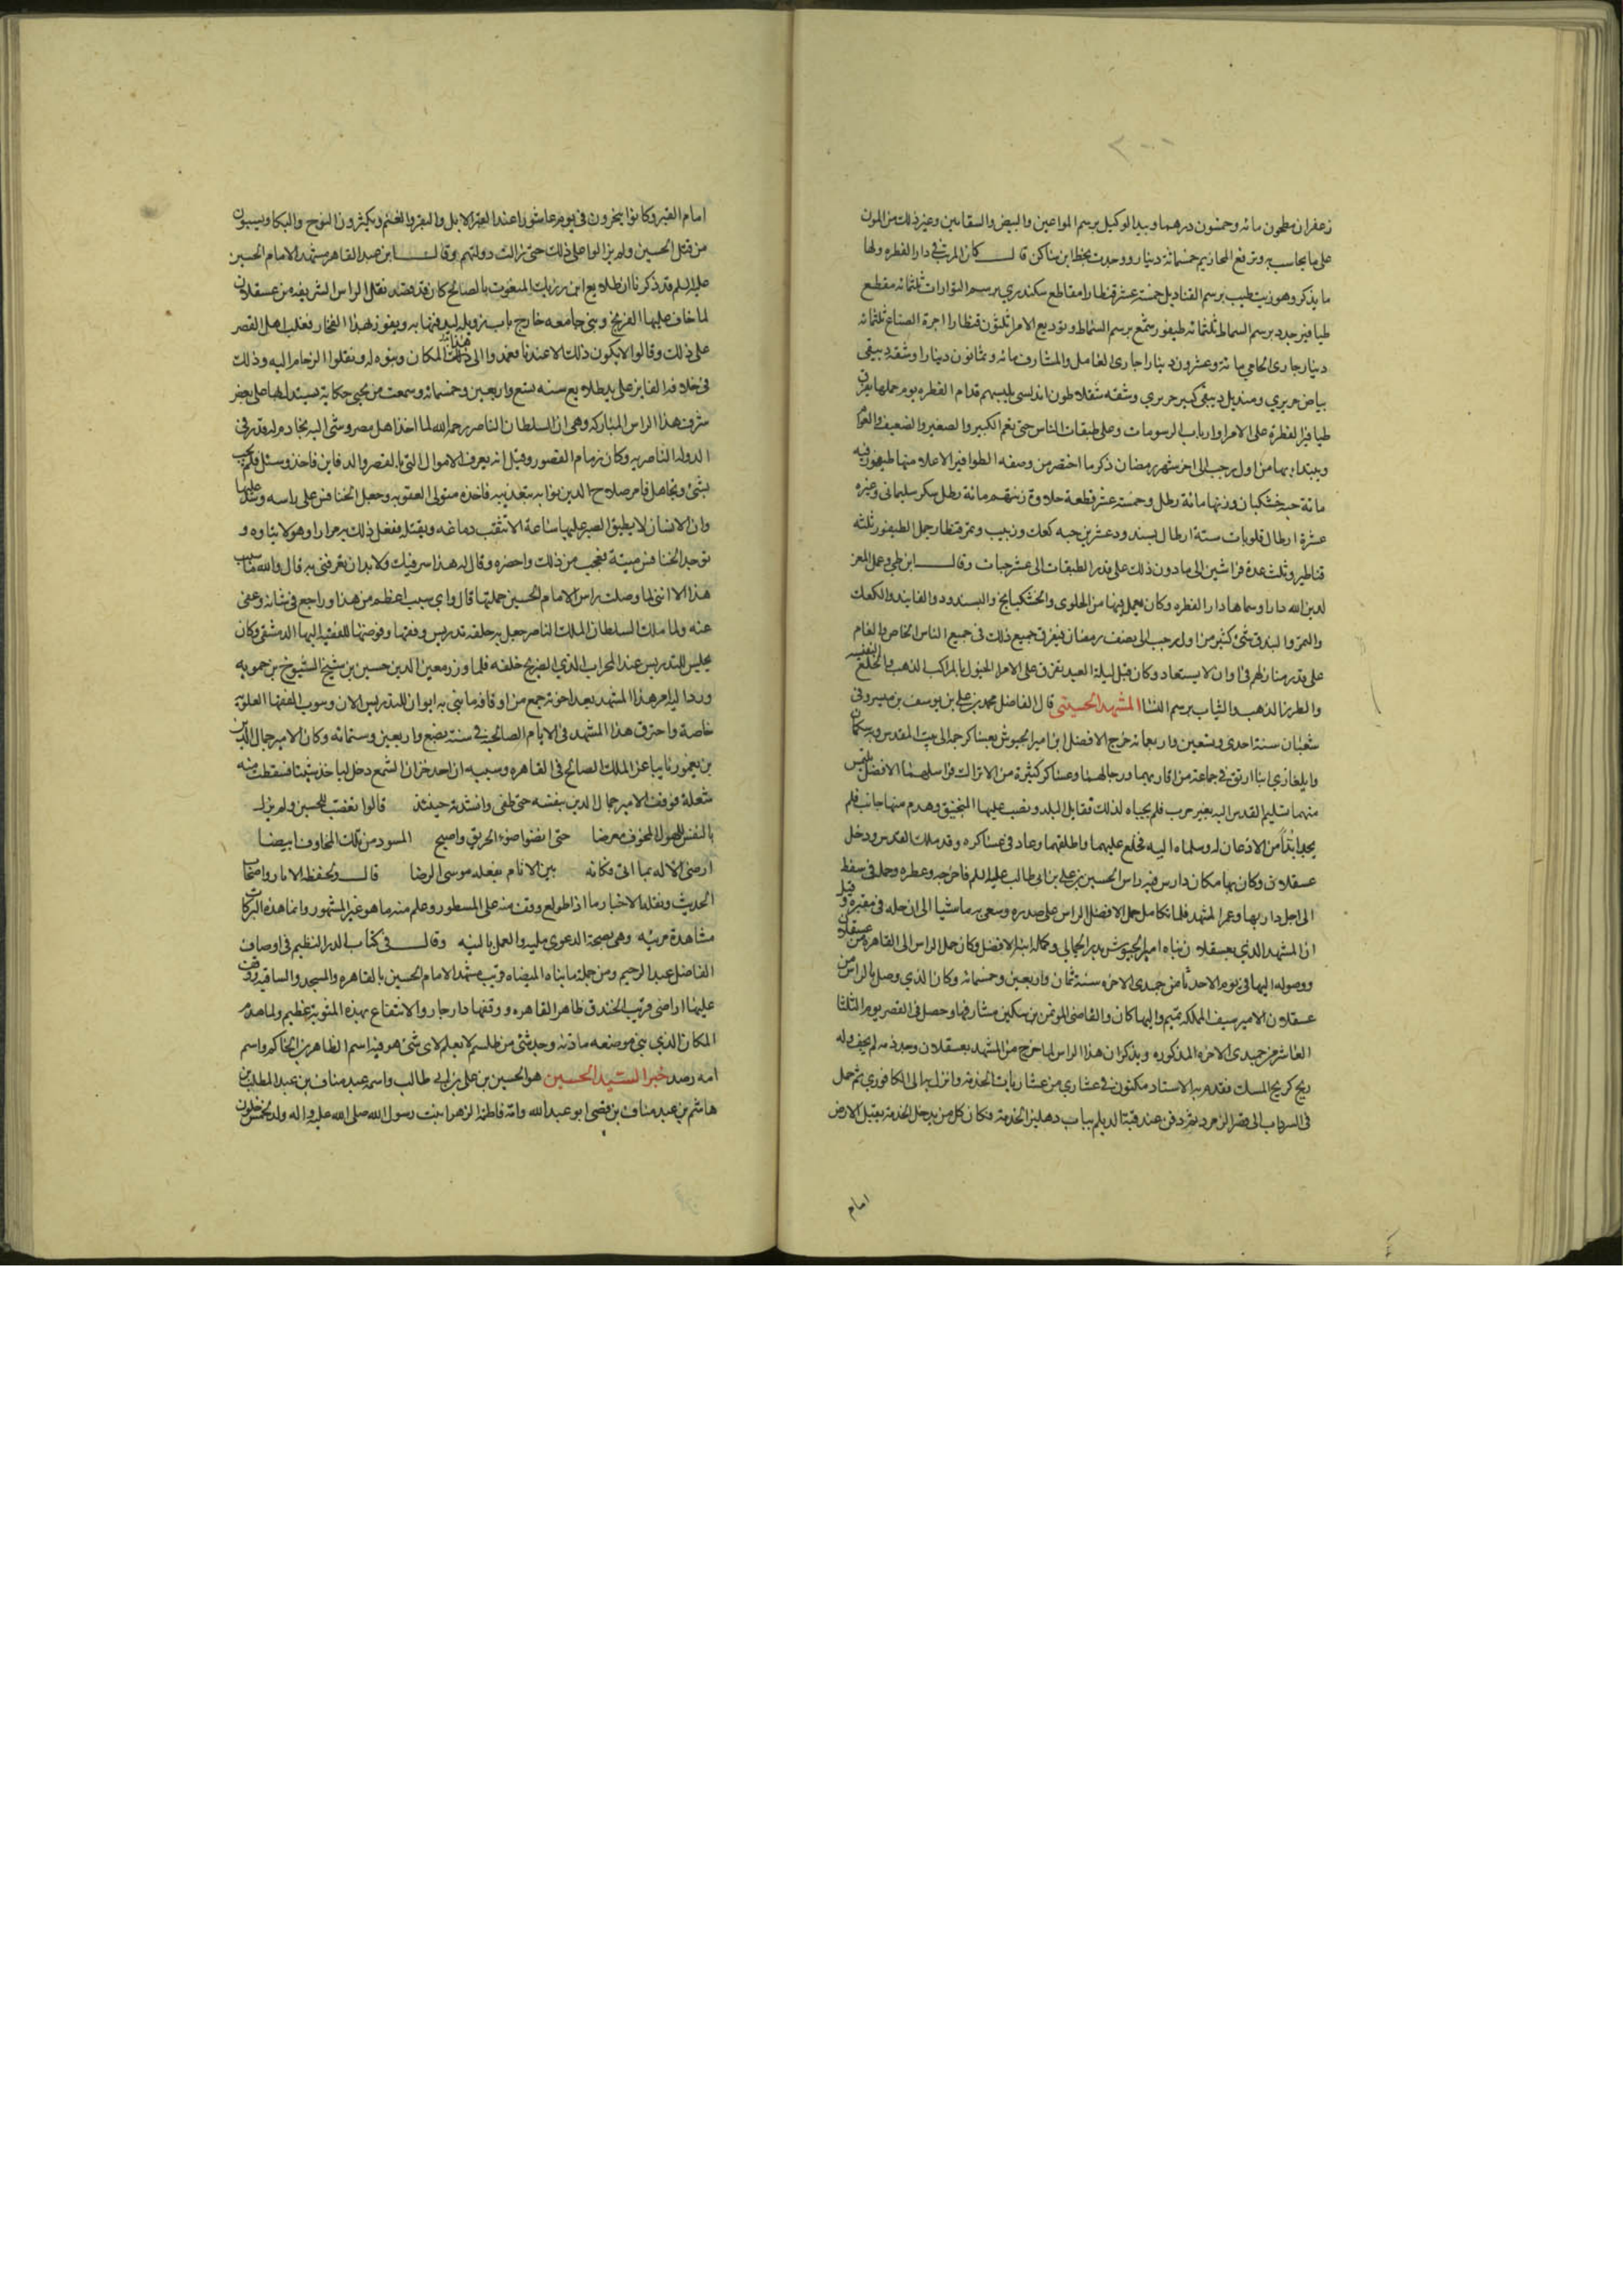 ٢٠٠
زعفران مطحون مائه وخمسون درهما وبيد الوكيل برسم المواعين والبيض والسقايين وغير ذلك من المون
على ما يحاسب به وترفع المخازيم خمسمائة دينار ووجدت بخط ابن ساكن قال كان المرتب في دار الفطره ولها
ما يذكر وهو زيت طيب برسم القناديل خمسة عشر قنطارا مقاطع سكندري برسم القوارات ثلثمائه مقطع
طيافير جدد برسم السماط ثلثمائه طيفور شمع برسم السماط وتوديع الامرا ثلثون قنطارا اجرة الصناع ثلثمائه
دينار جاري الحامي مائة وعشرون دينارا جاري العامل والمشارف مائه وثمانون دينارا وشقة دبيقي
بياض حريري ومنديل دبيقي كبير حريري وشقه سقلاطون اندلسي يلبسهم قدام الفطره يوم حملها يفرق
طيافير الفطره على الامرا وارباب الرسومات وعلى طبقات الناس حتى يعم الكبير والصغير والضعيف والقوي
ويبتدا بها من اول رجب الى اخر شهر رمضان ذكر ما اختصر من وصفه الطوافير الاعلا منها طيفور فيه
مائة حبه خشكنان وزنها مائة رطل وخمسة عشر قطعة حلاوة زنتهم مائة رطل سكر سليماني وغيره
عشرة ارطال قلوبات ستة ارطال بسندود عشرين حبه كعك وزبيب وتمر قنطار جمل الطيفور ثلثه
قناطير وثلث عدة فراشين الى ما دون ذلك على قدر الطبقات الى عشر حبات وقال ابن طي وعمل المعز
لدين الله دارا وسماها دار الفطره وكان يعمل فيها من الحلوى والخشكنانج والبسندود والفانيد والكعك
والتمر والبندق شي كثير من اول رجب الى نصف رمضان فيفرق جميع ذلك في جميع الناس الخاص والعام
على قدر منازلهم في اوان لا يستعاد وكان قبل ليلة العيد يفرق على الامرا الخيول بالمراكب الذهب والخلع النفيسه
والطرز الذهب والثياب برسم النسا المشهد الحسيني قال الفاضل محمد بن علي بن يوسف بن ميسر وفي
شعبان سنة احدى وتسعين واربعمائه خرج الافضل ابن امير الجيوش بعساكر جمه الى بيت المقدس وبه سكمان
وايلغازي ابنا ارتق في جماعة من اقاربهما ورجالهما وعساكر كثيرة من الاتراك فراسلهما الافضل يلتمس
منهما تسليم القدس اليه بغير حرب فلم يجيباه لذلك فقابل البلد ونصب عليها المنجنيق وهدم منها جانبا فلم
يجدا بدا من الاذعان له وسلماه اليه فخلع عليهما واطلقهما وعاد في عساكره وقد ملك القدس ودخل
عسقلان وكان بها مكان دارس فيه راس الحسين بن علي بن ابي طالب عليه السلم فاخرجه وعطره وحمله في سفط
الى اجل دار بها وعمر المشهد فلما تكامل حمل الافضل الراس على صدره وسعى به ماشيا الى ان حله في مقبره وقيل
ان المشهد الذي بعسقلان بناه امير الجيوش بدر الجمالي وكمله ابنه الافضل وكان حمل الراس الى القاهره من عسقلان
ووصوله اليها في يوم الاحد ثامن جمدى الاخره سنة ثمان واربعين وخمسمائه وكان الذي وصل بالراس من
عسقلان الامير سيف المملكه تميم واليها كان والقاضي المؤتمن بن مسكين مشارفها وحصل في القصر يوم الثلثا
العاشر من جمدى الاخره المذكوره ويذكر ان هذا الراس لما خرج من المشهد بعسقلان وجد دمه لم يجف وله
ريح كريح المسك فقدم به الاستاد مكنون في عشاري من عشاريات الخدمة وانزل به الى الكافوري ثم حمل
في السرداب الى قصر الزمرد ثم دفن عند قبة الديلم بباب دهليز الخدمة فكان كل من يدخل الخدمة يقبل الارض
امام
امام القبر وكانوا ينحرون في يوم عاشورا عند القبر الابل والبقر والغنم ويكثرون النوح والبكا ويسبون
من قتل الحسين ولم يزالوا على ذلك حتى زالت دولتهم وقال ابن عبد القاهر مشهد الامام الحسين
عليه السلم قد ذكرنا ان طلايع ابن رزيك المنعوت بالصالح كان قد قصد نقل الراس الشريفه من عسقلان
لما خاف عليها الفرنج وبنى جامعه خارج باب زويله ليدفنها به ويفوز بهذا الفخار فغلبه اهل القصر
على ذلك وقالوا لا يكون ذلك الا عندنا فعمدوا الى هذا المكان وبنوه له ونقلوا الرخام اليه وذلك
في خلافه الفايز على يد طلايع سنه تسع واربعين وخمسمائه وسمعت من يحكي حكاية يستدل بها على بعض
شرف هذا الراس المباركه وهي ان السلطان الناصر رحمه الله لما اخذ اهل مصر وشى اليه بخادم له قدر في
الدوله الناصريه وكان زمام القصور وقيل انه يعرف الاموال التي بالقصر والدفاين فاخذ وسئل فلم يجب
بشي وتجاهل فامر صلاح الدين نوابه بتعذيبه فاخذه متولى العقوبه وجعل الخنافس على راسه وشد عليها
وان الانسان لا يطيق الصبر عليها ساعة الا تنقب دماغه ويقتله ففعل ذلك به مرارا وهو لا يتاوه و
توجد الخنافس ميتة فعجب من ذلك واحضره وقال له هذا سر فيك ولا بد ان تعرفني به قال والله ما سبب
هذا الا انني لما وصلت راس الامام الحسين حملتها قال واي سبب اعظم من هذا وراجع في شانه وعفي
عنه ولما ملك السلطان الملك الناصر جعل به حلقة تدريس وفقها وفوضها للفقيه البها الدمشقي وكان
يجلس للتدريس عند المحراب الذي الضريح خلفه فلما وزر معين الدين حسين بن شيخ الشيوخ بن حمويه
ورد اليه امر هذا المشهد بعد اخوته جمع من اوقافه ما بنى به ايوان للتدريس الان وبيوت الفقها العلويه
خاصة واحترق هذا المشهد في الايام الصالحيه في سنة بضع واربعين وستمائه وكان الامير جمال الدين
بن يغمور نايبا عن الملك الصالح في القاهره وسببه ان احد خزان الشمع دخل لياخذ شيئا فسقطت منه
شعلة فوقف الامير جمال الدين بنفسه حتى طفي وانشدته حينئذ قالوا تعصب للحسين ولم يزل
بالنفس للهول المخوف معرضا حتى انضوا ضوء الحريق واصبح المسود من تلك المخاوف ابيضا
ارضى الاله بما اتى فكانه بين الانام بفعله موسى الرضا قال ولحفظة الاثار واصحاب
الحديث ونقلة الاخبار ما اذا طولع ووقف منه على المسطور وعلم منه ما هو غير المشهور وانما هذه البركات
مشاهدة مرئيه وهي بصحة الدعوى مليه والعمل بالنيه وقال في كتاب الدر النظيم في اوصاف
الفاضل عبد الرحيم ومن جملة ما بناه الميضاه قريب مشهد الامام الحسين بالقاهره والمسجد والساقيه ووقف
عليها اراضي قريب الخندق ظاهر القاهره ووقفها دار جار والانتفاع بهذه المثوبة عظيم ولما هدم
المكان الذي بني موضعه ماذنه وجد شي من طلسم لا يعلم لاي شي هو فيه اسم الظاهر بن الحاكم واسم
امه رصد خبر السيد الحسين هو الحسين بن علي بن ابي طالب واسمه عبد مناف بن عبد المطلب بن
هاشم بن عبد مناف بن قصي ابو عبد الله وامه فاطمة الزهرا بنت رسول الله صلى الله عليه واله ولد لخمس خلون